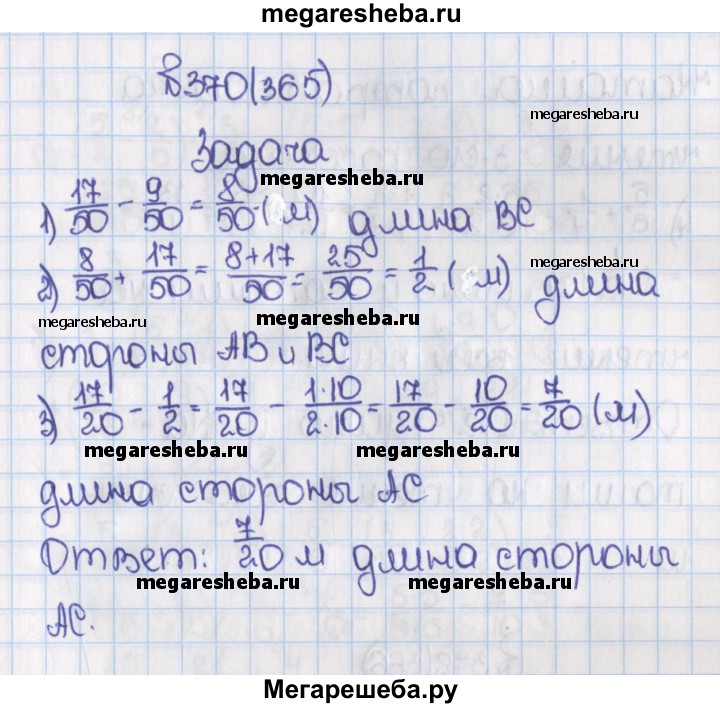 megaresheba.ru
В370(365)
megaresheba.ru
Задача
megaresheba.ru
1) 17/50 - 9/50 = 8/50 (м) длина ВС
megaresheba.ru
2) 8/50 + 17/50 = 8+17/50 = 25/50 = 1/2 (м) длина
megaresheba.ru megaresheba.ru
стороны АВ и ВС
3) 17/20 - 1/2 = 17/20 - 1·10/2·10 = 17/20 - 10/20 = 7/20 (м)
megaresheba.ru megaresheba.ru
длина стороны АС
Ответ: 7/20 м длина стороны
megaresheba.ru megaresheba.ru
АС.
Мегарешеба.ру